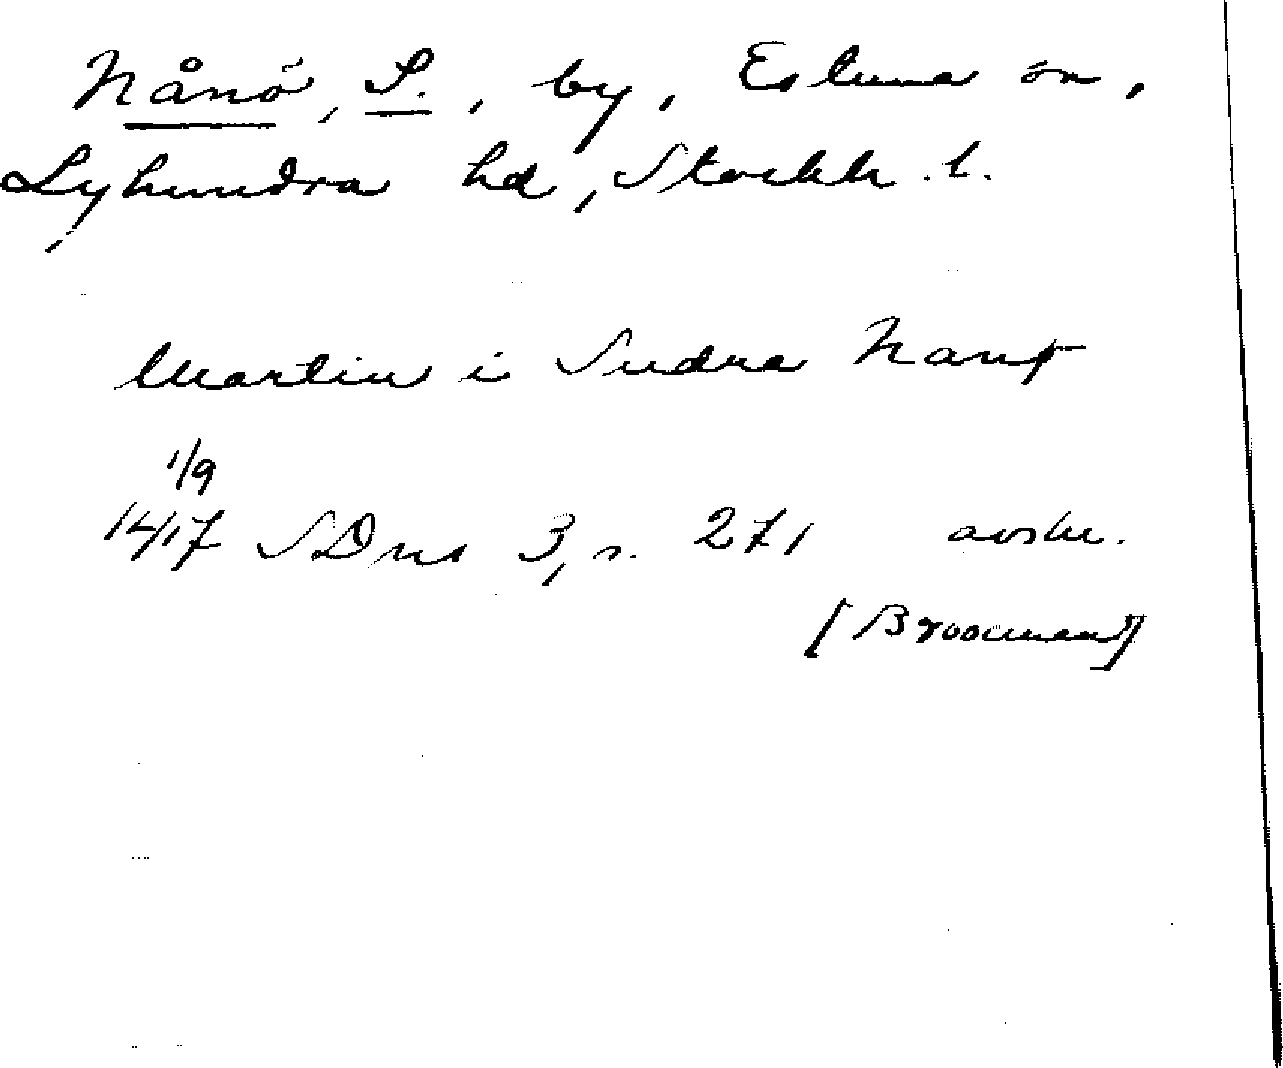 Nånö, S., by, Estuna sn,
Lyhundra hd, Stockh. l.
Martin i Sudra Nanø
1/9
1417 SDns 3, s. 271 avskr.
[Brooman]